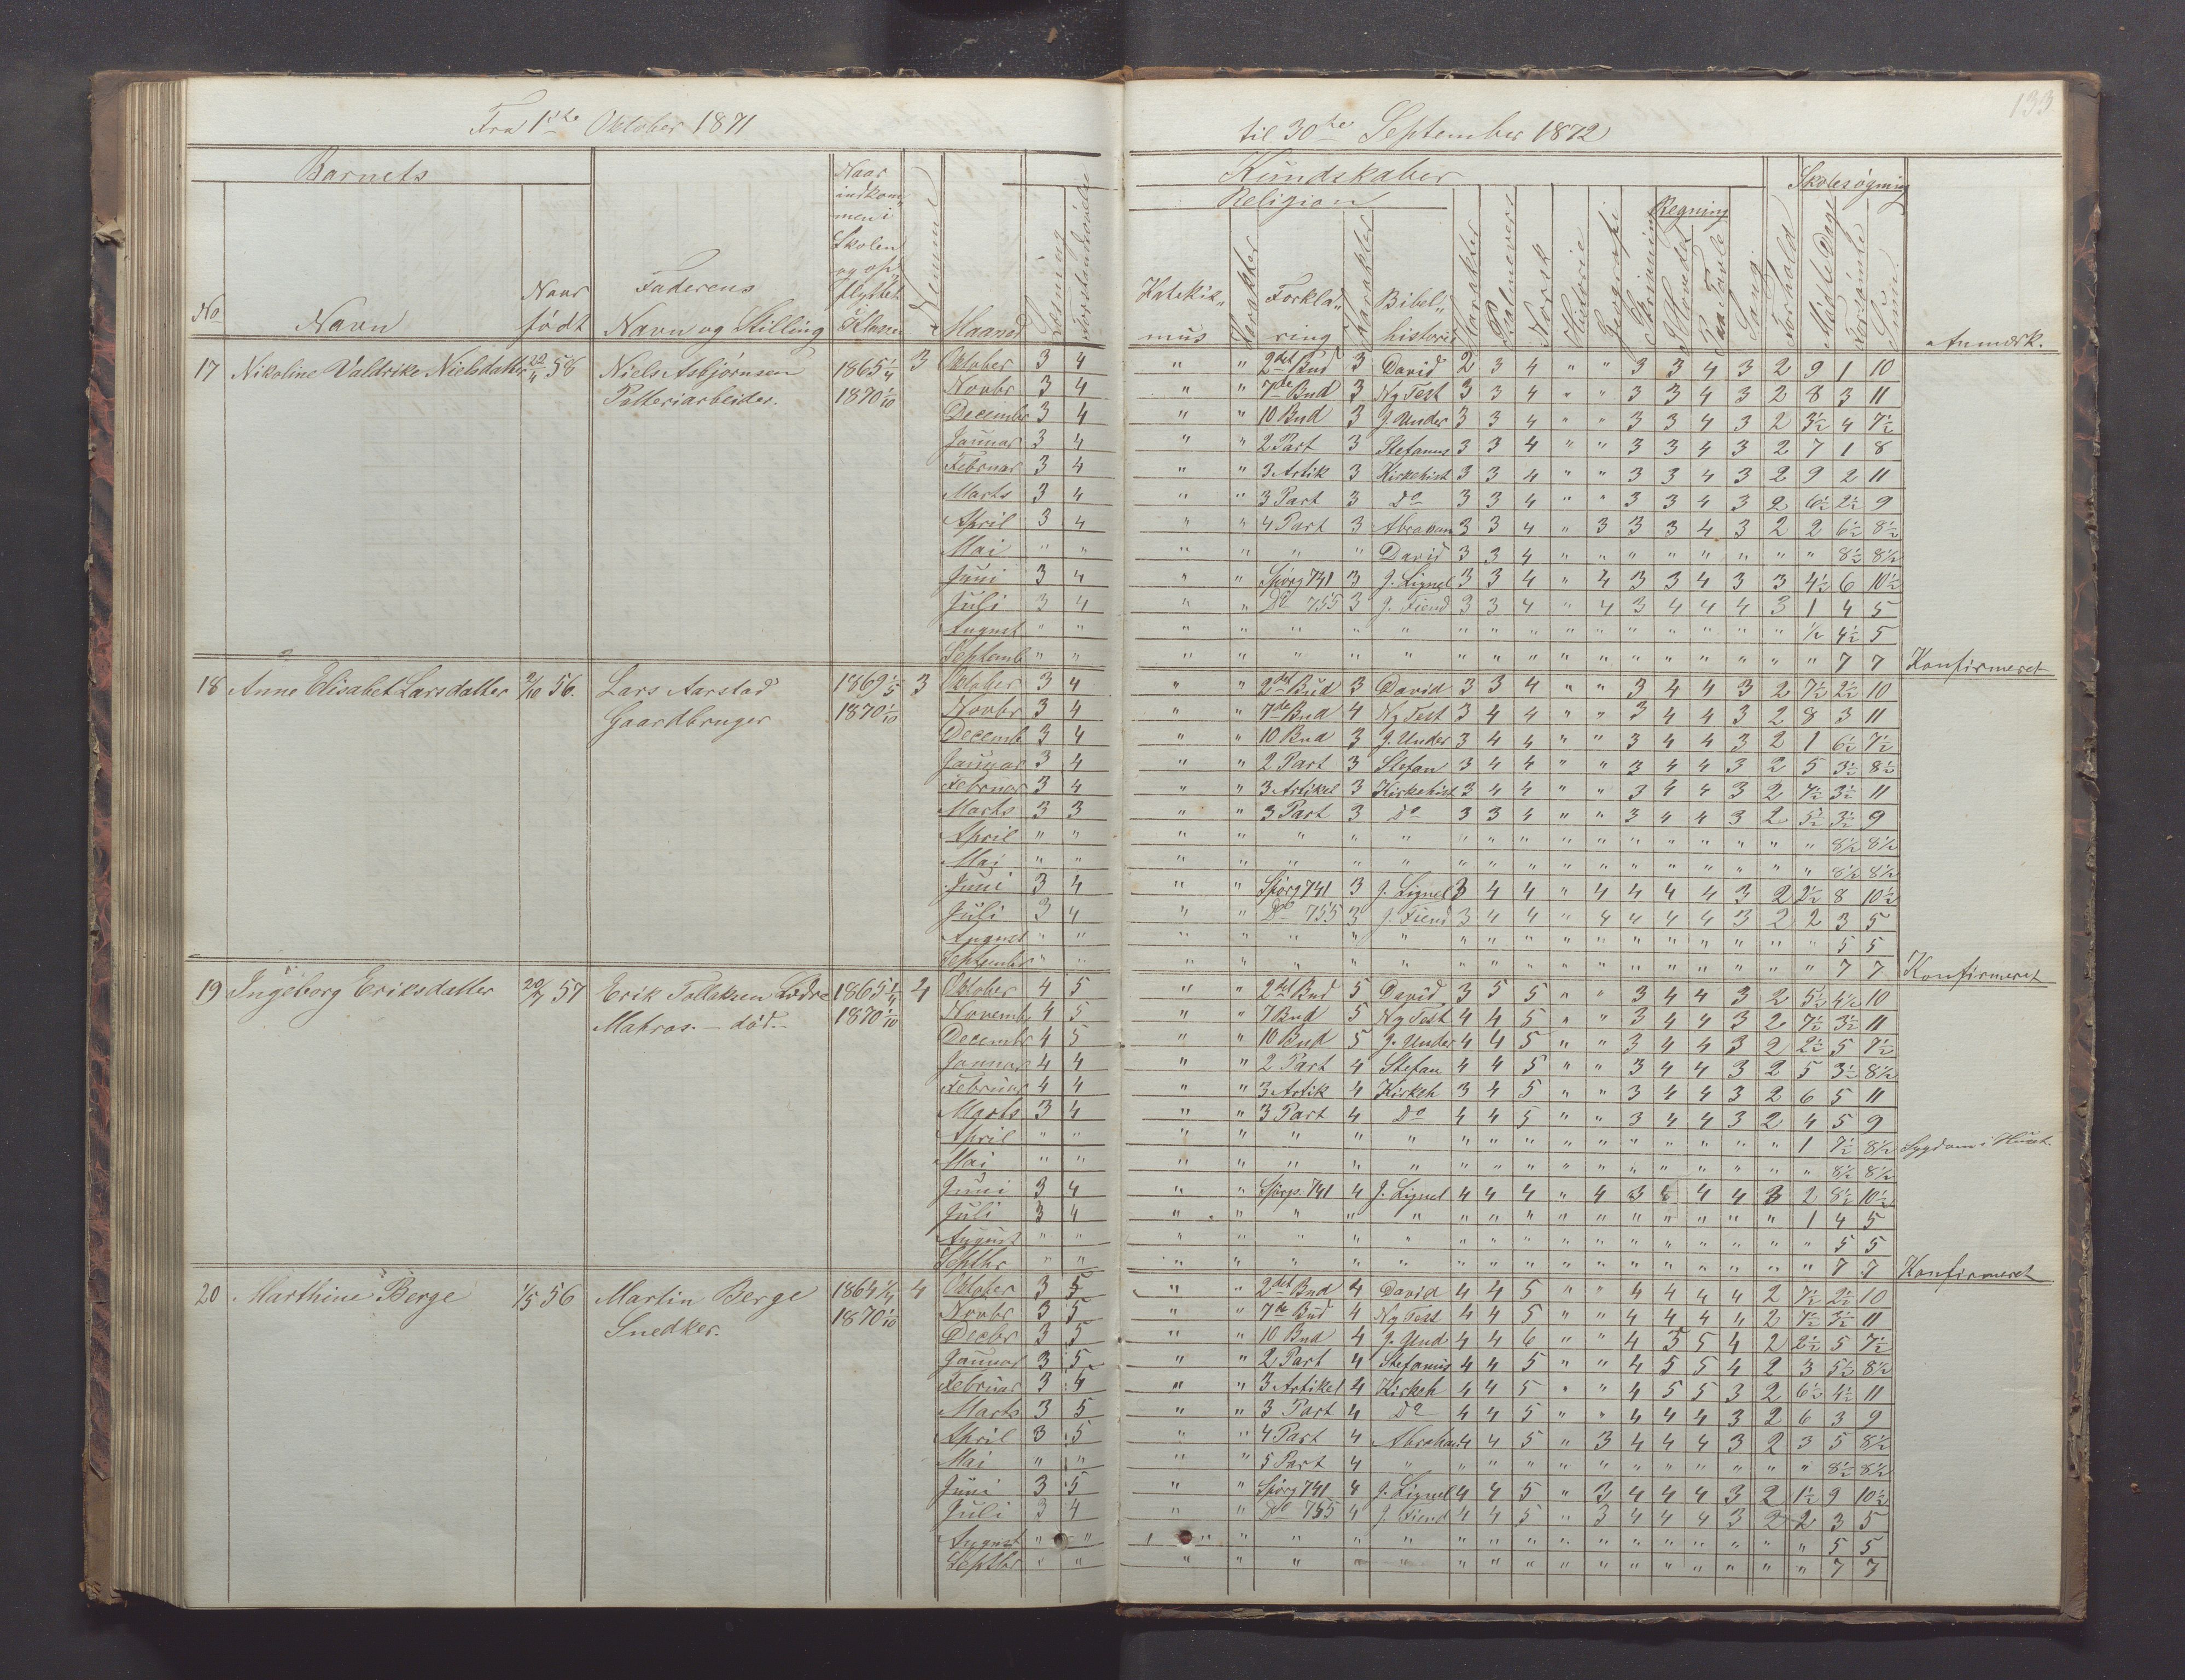 Fra 1ste Oktober 1871
til 30te September 1872
133
Barnets
No
Navn
Naar født
Faderens
Navn og Stilling
Naar indkommen i Skolen og opflyttet i Klassen
Nummer
Maaned
Læsning
Forstandsøvelse
Kundskaber
Religion
Katekismus
Karakter
Forklaring
Karakter
Bibelhistorie
Karakter
Psalmevers
Norsk
Historie
Geografi
Skrivning
Regning
Hovedet
Paa Tavle
Sang
Forhold
Skolesøgning
Mødte Dage
Forsømte
Sum
Anmærk.
17 Nikoline Valdrike Nielsdatter 22/4 58 Niels Asbjørnsen 1865 1/4 3 Oktober 3 4 " " 2det Bud 3 David 2 3 4 " " 3 3 4 3 2 9 1 10
Potteriarbeider. 1870 1/10 Novbr 3 4 " " 7de Bud 3 Ny Test 3 3 4 " " 3 3 4 3 2 8 3 11
December 3 4 " " 10 Bud 3 J. Under 3 3 4 " " 3 3 4 3 2 3½ 4 7½
Januar 3 4 " " 2 Part 3 Stefanus 3 3 4 " " 3 3 4 3 2 7 1 8
Februar 3 4 " " 3 Artik 3 Kirkehist 3 3 4 " " 3 3 4 3 2 9 2 11
Marts 3 4 " " 3 Part 3 Do 3 3 4 " " 3 3 4 3 2 6½ 2½ 9
April 3 4 " " 4 Part 3 Abraham 3 3 4 " 3 3 3 4 3 2 2 6½ 8½
Mai " " " " " " David 3 3 4 " " " " " " " " 8½ 8½
Juni 3 4 " " Spørg 741 3 J. Lignel 3 3 4 " 4 3 3 4 3 3 4½ 6 10½
Juli 3 4 " " Do 755 3 J. Fiend 3 3 4 " 4 3 4 4 4 3 1 4 5
August " " " " " " " " " " " " " " " " " ½ 4½ 5
Septemb " " " " " " " " " " " " " " " " " " 7 7 Konfirmeret
18 Anne Elisabet Larsdatter 2/10 56. Lars Aarstad 1869 1/5 3 Oktober 3 4 " " 2det Bud 3 David 3 3 4 " " 3 4 4 3 2 7½ 2½ 10
Gaardbruger 1870 1/10 Novbr 3 4 " " 7de Bud 4 Ny Test 3 4 4 " " 3 4 4 3 2 8 3 11
Decemb 3 4 " " 10 Bud 3 J. Under 3 4 4 " " 3 4 4 3 2 1 6½ 7½
Januar 3 4 " " 2 Part 3 Stefan 3 4 4 " " 3 4 4 3 2 5 3½ 8½
Februar 3 4 " " 3 Artikel 3 Kirkehist 3 4 4 " " 3 4 4 3 2 7½ 3½ 11
Marts 3 3 " " 3 Part 3 Do 3 3 4 " " 3 4 4 3 2 5½ 3½ 9
April " " " " " " " " " " " " " " " " " " 8½ 8½
Mai " " " " " " " " " " " " " " " " " " 8½ 8½
Juni 3 4 " " Spørg 741 3 J. Lignel 3 4 4 " 4 4 4 4 3 2 2½ 8 10½
Juli 3 4 " " Do 755 3 J. Fiend 3 4 4 " 4 4 4 4 3 2 2 3 5
August " " " " " " " " " " " " " " " " " " 5 5
September " " " " " " " " " " " " " " " " " " 7 7 Konfirmeret
19 Ingeborg Eriksdatter 20/7 57 Erik Tollaksen 1865 1/4 4 Oktober 4 5 " " 2det Bud 5 David 3 5 5 " " 3 4 4 3 2 5½ 4½ 10
Matros. – død. – 1870 1/10 Novemb 4 5 " " 7 Bud 5 Ny Test 4 4 5 " " 3 4 4 3 2 7½ 3½ 11
Decembr 4 5 " " 10 Bud 5 J. Under 4 4 5 " " 3 4 4 3 2 2½ 5 7½
Januar 4 4 " " 2 Part 4 Stefan 4 4 5 " " 3 4 4 3 2 5 3½ 8½
Februar 4 4 " " 3 Artik 4 Kirkeh 3 4 5 " " 3 4 4 3 2 6 5 11
Marts 3 4 " " 3 Part 4 Do 4 4 5 " " 3 4 4 3 2 4 5 9
April " " " " " " " " " " " " " " " " " 1 7½ 8½ Sygdom i Huset.
Mai " " " " " " " " " " " " " " " " " " 8½ 8½
Juni 3 4 " " Spørg. 741 4 J. Lignel 4 4 4 " 4 3 4 4 4 3 2 8½ 10½
Juli 3 4 " " " " " " " " " " " " " " " 1 4 5
August " " " " " " " " " " " " " " " " " " 5 5
Septbr " " " " " " " " " " " " " " " " " " 7 7 Konfirmeret
20 Marthine Berge 1/5 56 Martin Berge 1864 1/4 4 Oktober 3 5 " " 2det Bud 4 David 4 4 5 " " 4 4 4 4 2 7½ 2½ 10
Snedker. 1870 1/10 Novbr 3 5 " " 7de Bud 4 Ny Test 4 4 5 " " 4 4 4 4 2 7½ 3½ 11
Decbr 3 5 " " 10 Bud 4 J. Und 4 4 6 " " 4 5 5 4 2 2½ 5 7½
Januar 3 5 " " 2 Part 4 Stefanus 4 4 5 " " 4 5 5 4 2 3 5½ 8½
Februar 3 4 " " 3 Artikel 4 Kirkeh 4 4 5 " " 4 5 5 3 2 6½ 4½ 11
Marts 3 5 " " 3 Part 4 Do 4 4 5 " " 4 4 4 3 2 6 3 9
April 3 5 " " 4 Part 4 Abraham 4 4 5 " 3 4 4 4 3 2 3 5 8½
Mai " " " " 5 Part 4 " " " " " " " " " " " " 8½ 8½
Juni 3 5 " " Spørg 741 4 J. Lignel 4 4 5 " 3 4 4 4 3 2 1½ 9 10½
Juli 3 4 " " Do 755 4 J. Fiend 4 4 5 " 3 4 4 4 3 2 2 3 5
August " " " " " " " " " " " " " " " " " " 5 5
Septbr " " " " " " " " " " " " " " " " " " 7 7